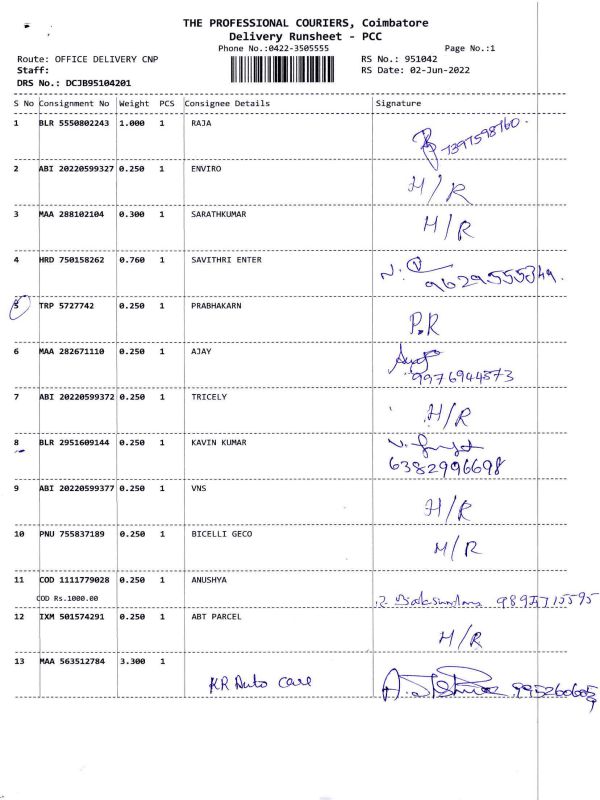 THE PROFESSIONAL COURIERS, Coimbatore
Delivery Runsheet - PCC
Phone No.:0422-3505555 Page No.:1
Route: OFFICE DELIVERY CNP RS No.: 951042
Staff: RS Date: 02-Jun-2022
DRS No.: DCJB95104201
S No Consignment No Weight PCS Consignee Details Signature
1 BLR 5550802243 1.000 1 RAJA 7397598760.
2 ABI 20220599327 0.250 1 ENVIRO H/R
3 MAA 288102104 0.300 1 SARATHKUMAR H/R
4 HRD 750158262 0.760 1 SAVITHRI ENTER
9629555349.
5 TRP 5727742 0.250 1 PRABHAKARN P.R
6 MAA 282671110 0.250 1 AJAY
9976944873
7 ABI 20220599372 0.250 1 TRICELY H/R
8 BLR 2951609144 0.250 1 KAVIN KUMAR
6382996698
9 ABI 20220599377 0.250 1 VNS H/R
10 PNU 755837189 0.250 1 BICELLI GECO H/R
11 COD 1111779028 0.250 1 ANUSHYA
COD Rs.1000.00
12 IXM 501574291 0.250 1 ABT PARCEL H/R
13 MAA 563512784 3.300 1
KR Auto care 9952606059